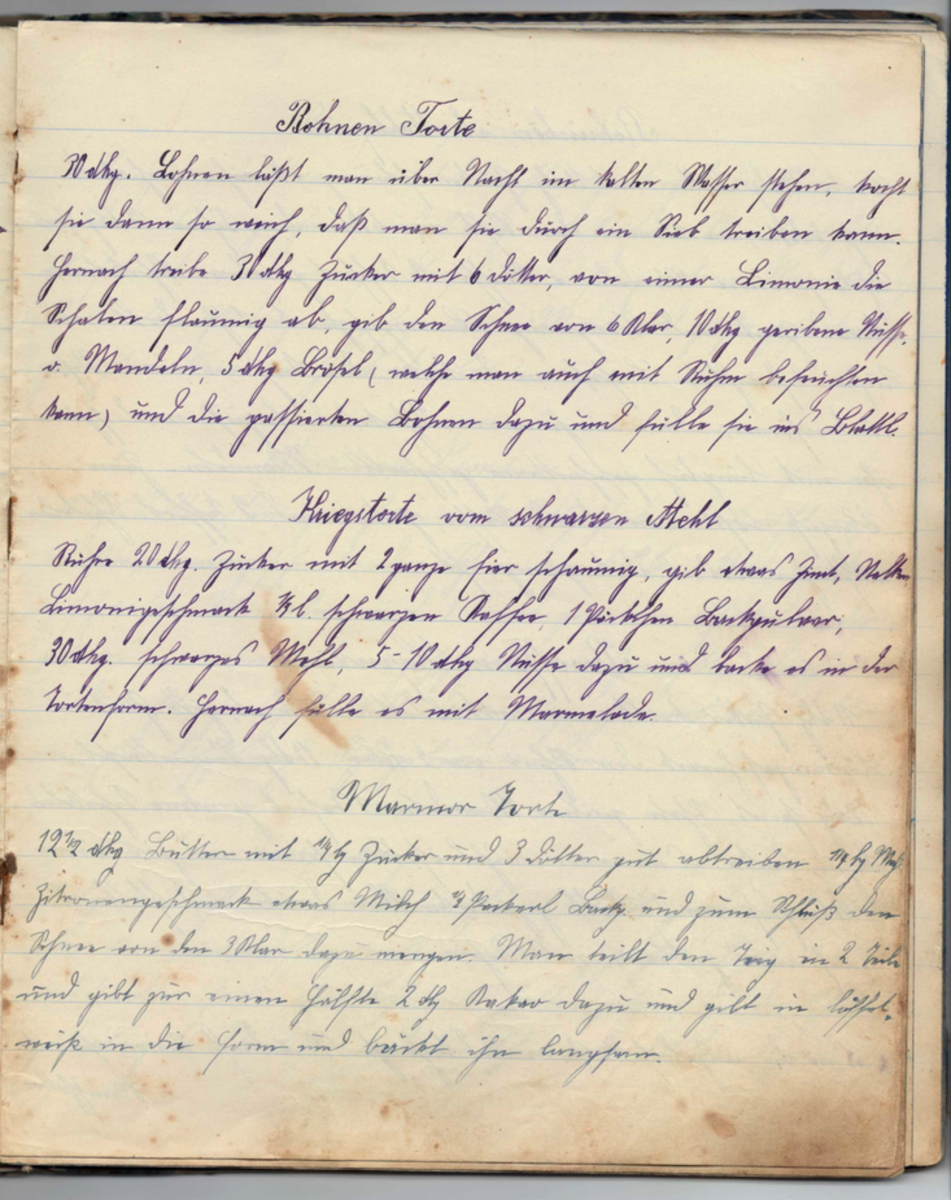 Bohnen Torte
30 dkg. Bohnen läßt man über Nacht im kalten Wasser stehen, kocht
sie dann so weich, daß man sie durch ein Sieb treiben kann.
Hernach treibe 30 dkg Zucker mit 6 Dotter, von einer Limonie die
Schalen flaumig ab, gib den Schnee von 6 Klar, 10 dkg geriebene Nüsse,
o. Mandeln, 5 dkg Brösel (welche man auch mit Ruhm befeuchten
kann) und die passierten Bohnen dazu und fülle sie ins Blattl.
Kriegstorte vom schwarzen Mehl
Rühre 20 dkg. Zucker mit 2 ganze Eier schaumig, gib etwas Zimt, Nelken
Limonigeschmack l. schwarzen Kaffee, 1 Päckchen Backpulver,
30 dkg. schwarzes Mehl, 5-10 dkg Nüsse dazu und backe es in der
Tortenform. Hernach fülle es mit Marmelade.
Marmor Torte
12 1/2 dkg Butter mit 1/4 kg Zucker und 3 Dotter gut abtreiben 1/4 kg Mehl
Zitronengeschmack etwas Milch Packerl Backp. und zum Schluß den
Schnee von den 3 Klar dazu mengen. Man teilt den Teig in 2 Teile
und gibt zur einen Hälfte 2 dkg Kakao dazu und gibt in löffel-
weiß in die Form und bäckt ihn langsam.